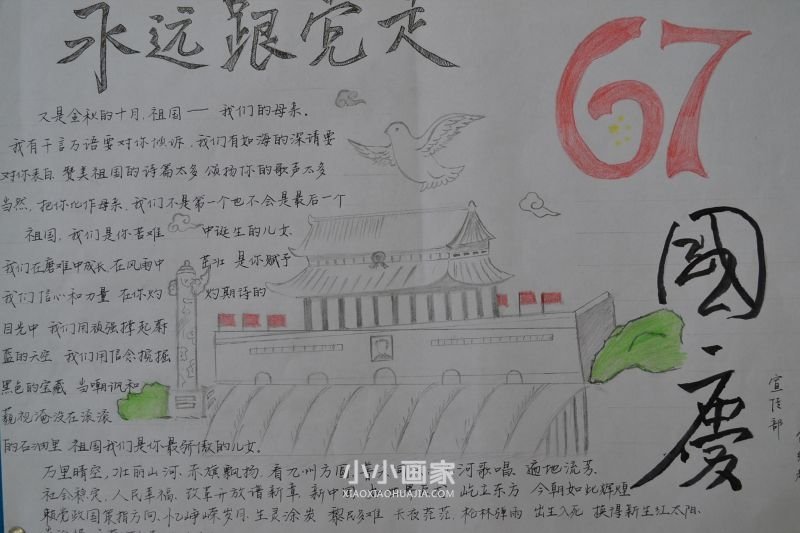 永远跟党走
67
國慶
宣传部
又是金秋的十月,祖国——我们的母亲。
我有千言万语要对你倾诉,我们有如海的深请要
对你表白 赞美祖国的诗篇太多 颂扬你的歌声太多
当然,把你化作母亲,我们不是第一个也不会是最后一个
祖国,我们是你苦难 中诞生的儿女.
我们在磨难中成长,在风雨中 茁壮 是你赋予
我们信心和力量 在你灼 灼期待的
目光中 我们用顽强撑起蔚
蓝的天空 我们用信念挖掘
黑色的宝藏 当嘲讽和
藐视淹没在滚滚
的石油里 祖国我们是你最骄傲的儿女.
万里晴空,壮丽山河.赤旗飘扬.看九州方圆,普天同 河歌唱 遍地流芳.
社会稳定,人民幸福.改革开放谱新章.新中 屹立东方 今朝如此辉煌
赖党政国策指方向.忆峥嵘岁月.生灵涂炭 黎民多难 长夜茫茫.枪林弹雨 出生入死 换得新生红太阳.
小小画家
XIAOXIAOHUAJIA.COM